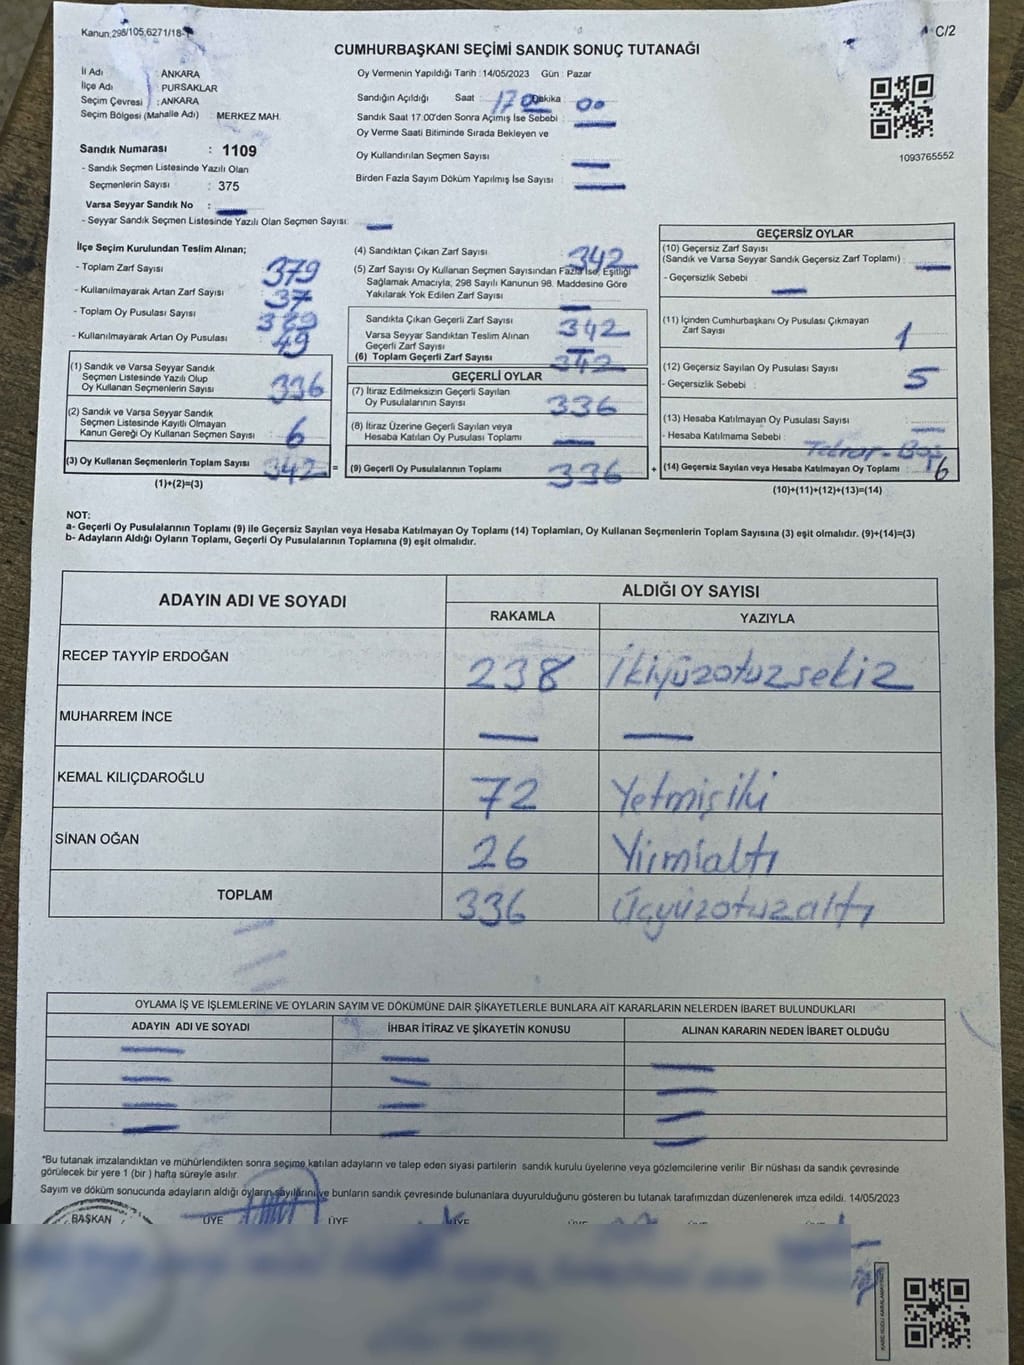 Kanun:298/105,6271/18-
C/2
CUMHURBAŞKANI SEÇİMİ SANDIK SONUÇ TUTANAĞI
İl Adı : ANKARA
İlçe Adı : PURSAKLAR
Seçim Çevresi : ANKARA
Seçim Bölgesi (Mahalle Adı) : MERKEZ MAH.
Sandık Numarası : 1109
- Sandık Seçmen Listesinde Yazılı Olan
Seçmenlerin Sayısı : 375
Varsa Seyyar Sandık No :
- Seyyar Sandık Seçmen Listesinde Yazılı Olan Seçmen Sayısı:
Oy Vermenin Yapıldığı Tarih : 14/05/2023 Gün : Pazar
Sandığın Açıldığı Saat : 17 00 Dakika : 00
Sandık Saat 17.00'den Sonra Açımış İse Sebebi :
Oy Verme Saati Bitiminde Sırada Bekleyen ve
Oy Kullandırılan Seçmen Sayısı
Birden Fazla Sayım Döküm Yapılmış İse Sayısı :
1093765552
İlçe Seçim Kurulundan Teslim Alınan;
- Toplam Zarf Sayısı 379
- Kullanılmayarak Artan Zarf Sayısı : 37
- Toplam Oy Pusulası Sayısı
- Kullanılmayarak Artan Oy Pusulası : 49
(1) Sandık ve Varsa Seyyar Sandık
Seçmen Listesinde Yazılı Olup
Oy Kullanan Seçmenlerin Sayısı : 336
(2) Sandık ve Varsa Seyyar Sandık
Seçmen Listesinde Kayıtlı Olmayan
Kanun Gereği Oy Kullanan Seçmen Sayısı : 6
(3) Oy Kullanan Seçmenlerin Toplam Sayısı : 342 =
(1)+(2)=(3)
(4) Sandıktan Çıkan Zarf Sayısı : 342
(5) Zarf Sayısı Oy Kullanan Seçmen Sayısından Fazla İse, Eşitliği
Sağlamak Amacıyla, 298 Sayılı Kanunun 98. Maddesine Göre
Yakılarak Yok Edilen Zarf Sayısı :
Sandıkta Çıkan Geçerli Zarf Sayısı : 342
Varsa Seyyar Sandıktan Teslim Alınan
Geçerli Zarf Sayısı
(6) Toplam Geçerli Zarf Sayısı : 342
GEÇERLİ OYLAR
(7) İtiraz Edilmeksizin Geçerli Sayılan
Oy Pusulalarının Sayısı : 336
(8) İtiraz Üzerine Geçerli Sayılan veya
Hesaba Katılan Oy Pusulası Toplamı :
(9) Geçerli Oy Pusulalarının Toplamı : 336 +
GEÇERSİZ OYLAR
(10) Geçersiz Zarf Sayısı
(Sandık ve Varsa Seyyar Sandık Geçersiz Zarf Toplamı) :
- Geçersizlik Sebebi :
(11) İçinden Cumhurbaşkanı Oy Pusulası Çıkmayan
Zarf Sayısı : 1
(12) Geçersiz Sayılan Oy Pusulası Sayısı : 5
- Geçersizlik Sebebi :
(13) Hesaba Katılmayan Oy Pusulası Sayısı :
- Hesaba Katılmama Sebebi :
(14) Geçersiz Sayılan veya Hesaba Katılmayan Oy Toplamı : 6
(10)+(11)+(12)+(13)=(14)
NOT:
a- Geçerli Oy Pusulalarının Toplamı (9) ile Geçersiz Sayılan veya Hesaba Katılmayan Oy Toplamı (14) Toplamları, Oy Kullanan Seçmenlerin Toplam Sayısına (3) eşit olmalıdır. (9)+(14)=(3)
b- Adayların Aldığı Oyların Toplamı, Geçerli Oy Pusulalarının Toplamına (9) eşit olmalıdır.
ADAYIN ADI VE SOYADI
ALDIĞI OY SAYISI
RAKAMLA YAZIYLA
RECEP TAYYİP ERDOĞAN 238 İkiyüzotuzsekiz
MUHARREM İNCE
KEMAL KILIÇDAROĞLU 72 Yetmişiki
SİNAN OĞAN 26 Yirmialtı
TOPLAM 336 Üçyüzotuzaltı
OYLAMA İŞ VE İŞLEMLERİNE VE OYLARIN SAYIM VE DÖKÜMÜNE DAİR ŞİKAYETLERLE BUNLARA AİT KARARLARIN NELERDEN İBARET BULUNDUKLARI
ADAYIN ADI VE SOYADI İHBAR İTİRAZ VE ŞİKAYETİN KONUSU ALINAN KARARIN NEDEN İBARET OLDUĞU
*Bu tutanak imzalandıktan ve mühürlendikten sonra seçime katılan adayların ve talep eden siyasi partilerin sandık kurulu üyelerine veya gözlemcilerine verilir Bir nüshası da sandık çevresinde
görülecek bir yere 1 (bir ) hafta süreyle asılır.
Sayım ve döküm sonucunda adayların aldığı oyların sayılarını ve bunların sandık çevresinde bulunanlara duyurulduğunu gösteren bu tutanak tarafımızdan düzenlenerek imza edildi. 14/05/2023
BAŞKAN ÜYE ÜYE ÜYE